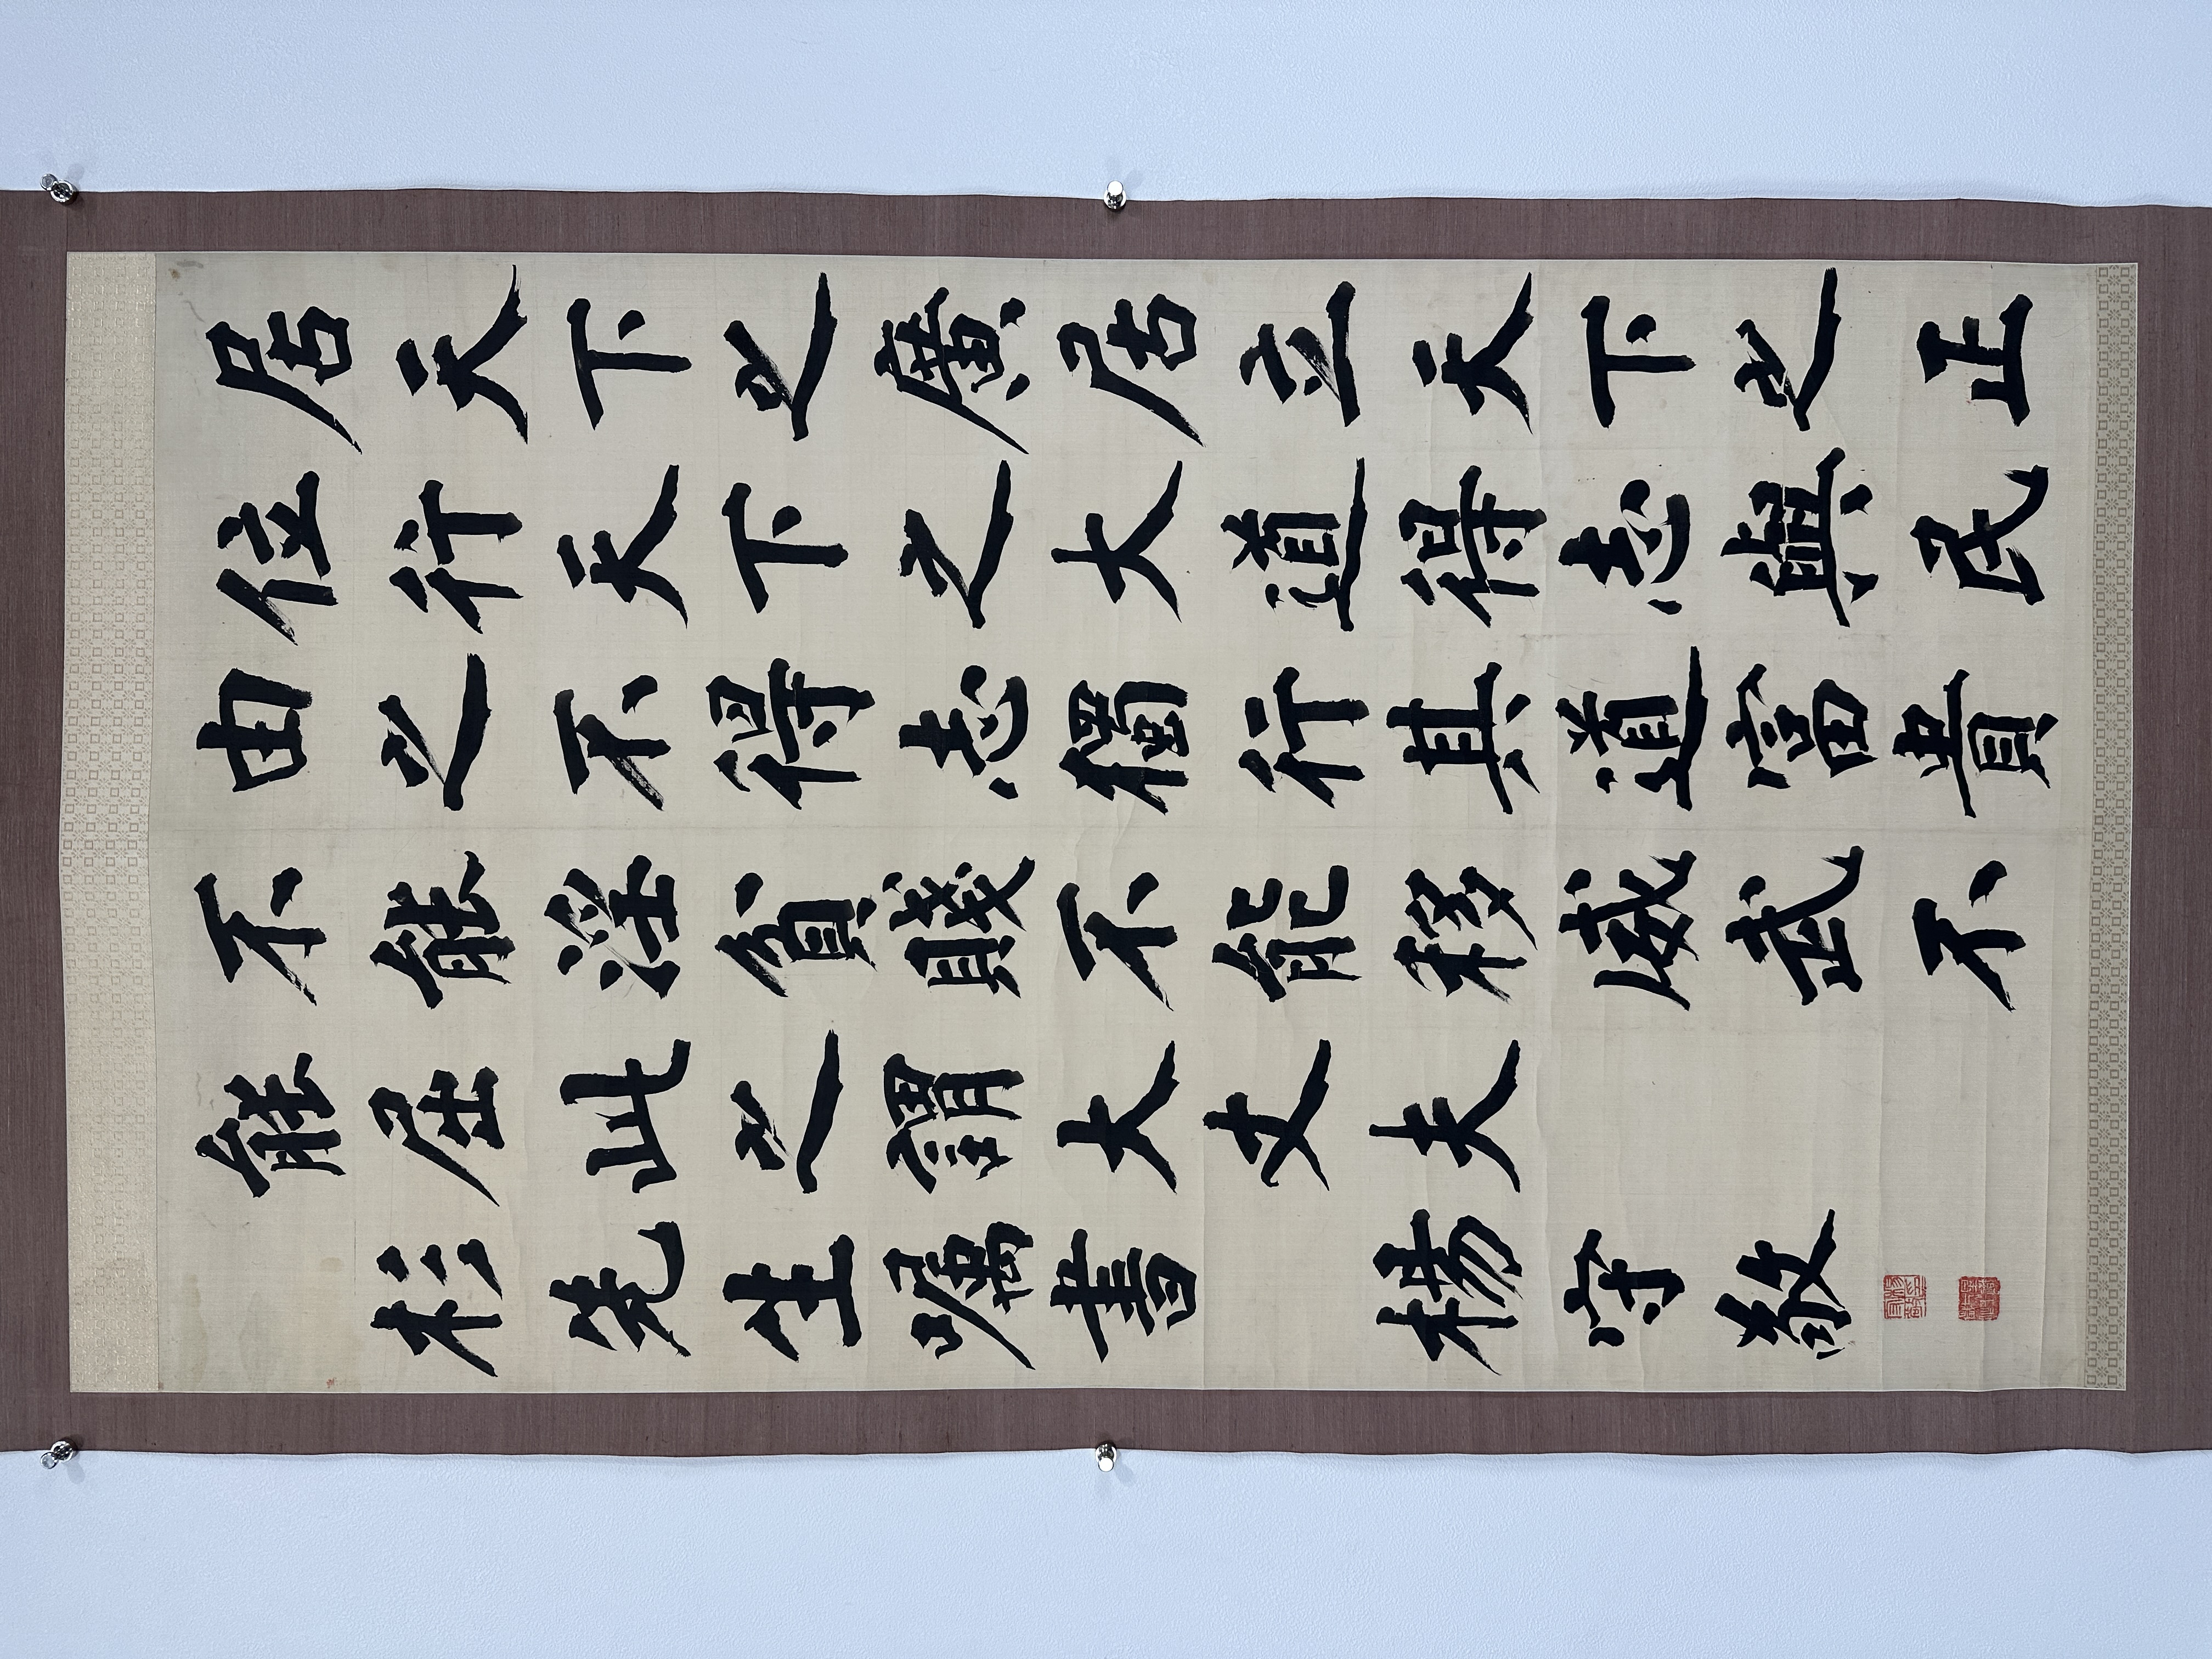 居天下之廣居立天下之正
位行天下之大道得志與民
由之不得志獨行其道富貴
不能淫貧賤不能移威武不
能屈此之謂大丈夫
杉先生囑書 楊守敬